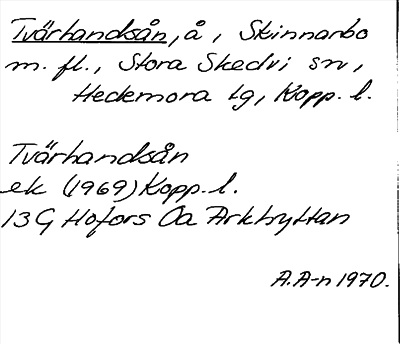 Tvärhandsån, å, Skinnarbo
m. fl., Stora Skedvi sn,
Hedemora tg, Kopp. l.
Tvärhandsån
ek (1969) Kopp. l.
13 G Hofors Oa Arkhyttan
A.A-n 1970.